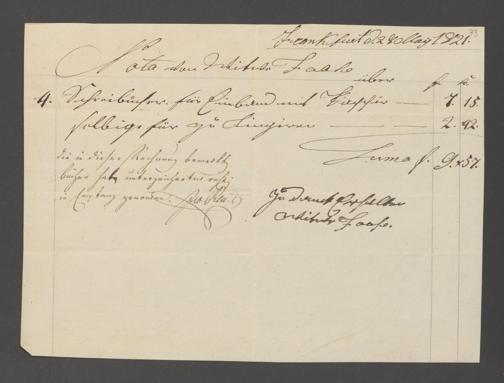 73
Frankfurt d 28 May 1821.
Nota von Witwe Haase
über f x
4. Schreibücher für Einband mit — 7. 15
selbige für zu Liniren — 2. 42.
Suma f. 9.x57.
die in dieser Rechnung bemerkte
bücher hat unterzeichneter richtig
in Empfang genommen.
zu danck Erhalten
Witwe Haase.